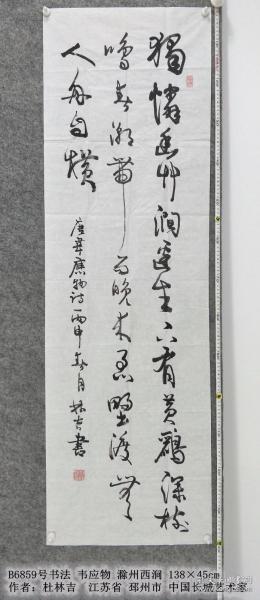 獨憐幽艸澗邊生上有黃鸝深樹
鳴春潮帶雨晚來急野渡無
人舟自橫
唐韋應物詩丙申春月林吉書
B6859号书法 韦应物 滁州西涧 138×45cm
作者：杜林吉 江苏省 邳州市 中国长城艺术家